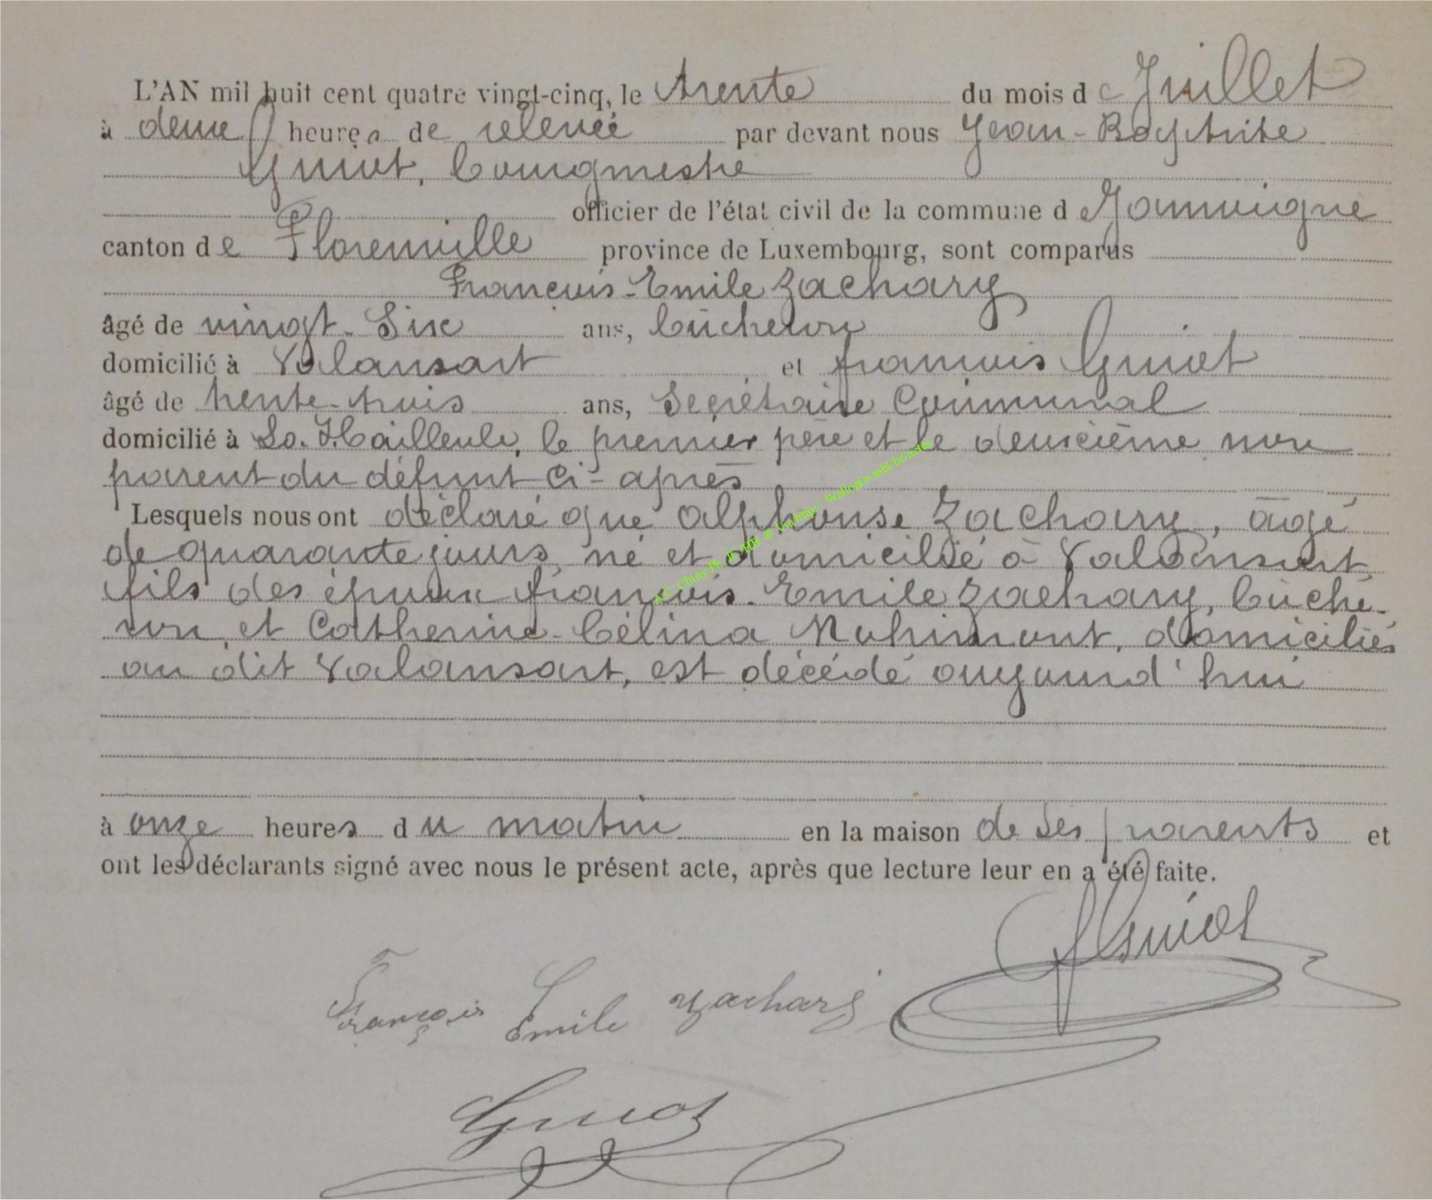 L'AN mil huit cent quatre vingt-cinq, le trente du mois de Juillet
à deux heures de relevée par devant nous Jean-Baptiste
Guiot, bourgmestre
officier de l'état civil de la commune de Jamoigne
canton de Florenville province de Luxembourg, sont comparus
François-Emile Zachary
âgé de vingt-six ans, bûcheron
domicilié à Valansart et françois Guiot
âgé de trente-trois ans, Secrétaire Communal
domicilié à La Hailleule, le premier père et le deuxième non
parent du défunt ci-après
Lesquels nous ont déclaré que alphonse Zachary, âgé
de quarante jours, né et domicilié à Valansart
fils des époux françois-Emile Zachary, bûche-
ron, et Catherine-Célina Mohimont, domiciliés
au dit Valansart, est décédé aujourd'hui
à onze heures du matin en la maison de ses parents et
ont les déclarants signé avec nous le présent acte, après que lecture leur en a été faite.
Guiot
François Emile Zachary
Guiot